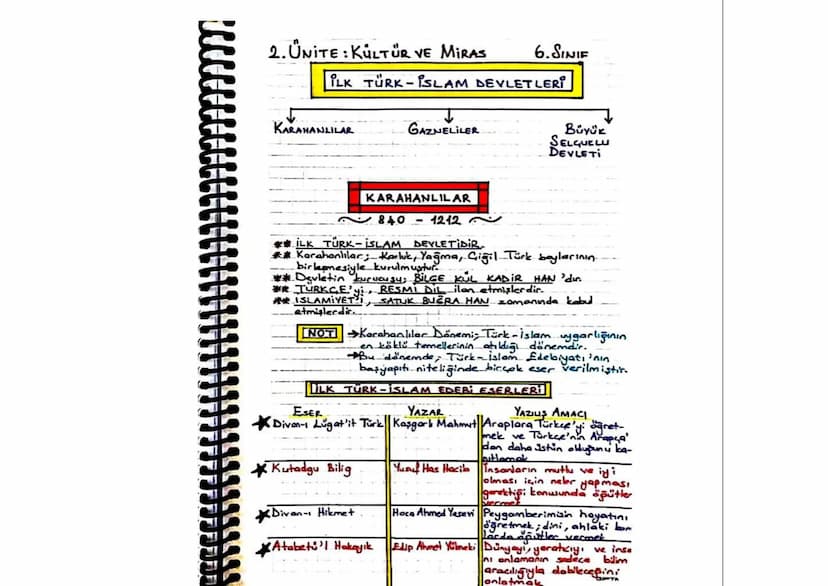 2. ÜNİTE: KÜLTÜR VE MİRAS 6. SINIF
İLK TÜRK-İSLAM DEVLETLERİ
KARAHANLILAR GAZNELİLER BÜYÜK
SELÇUKLU
DEVLETİ
KARAHANLILAR
840 - 1212
** İLK TÜRK-İSLAM DEVLETİDİR.
** Karahanlılar; Karluk, Yağma, Çiğil Türk boylarının
birleşmesiyle kurulmuştur.
** Devletin kurucusu; BİLGE KÜL KADİR HAN'dır.
** TÜRKÇE'yi, RESMİ DİL ilan etmişlerdir.
** İSLAMİYET'İ, SATUK BUĞRA HAN zamanında kabul
etmişlerdir.
NOT →Karahanlılar Dönemi; Türk-İslam uygarlığının
en köklü temellerinin atıldığı dönemdir.
→Bu dönemde; Türk-İslam Edebiyatı'nın
başyapıtı niteliğinde birçok eser verilmiştir.
İLK TÜRK-İSLAM EDEBİ ESERLERİ
ESER YAZAR YAZILIŞ AMACI
Divan-ı Lügat'it Türk Kaşgarlı Mahmut Araplara Türkçe'yi öğret-
mek ve Türkçe'nin Arapça'
dan daha üstün olduğunu ka-
nıtlamak
Kutadgu Bilig Yusuf Has Hacib İnsanların mutlu ve iyi
olması için neler yapması
gerektiği konusunda öğütler
vermek
Divan-ı Hikmet Hoca Ahmed Yesevi Peygamberimizin hayatını
öğretmek; dini, ahlaki kon
larda öğütler vermek
Atabetü'l Hakayık Edip Ahmet Yükneki Dünyayı, yaratıcıyı ve insa
nı anlamanın sadece bilim
aracılığıyla olabileceğini
anlatmak